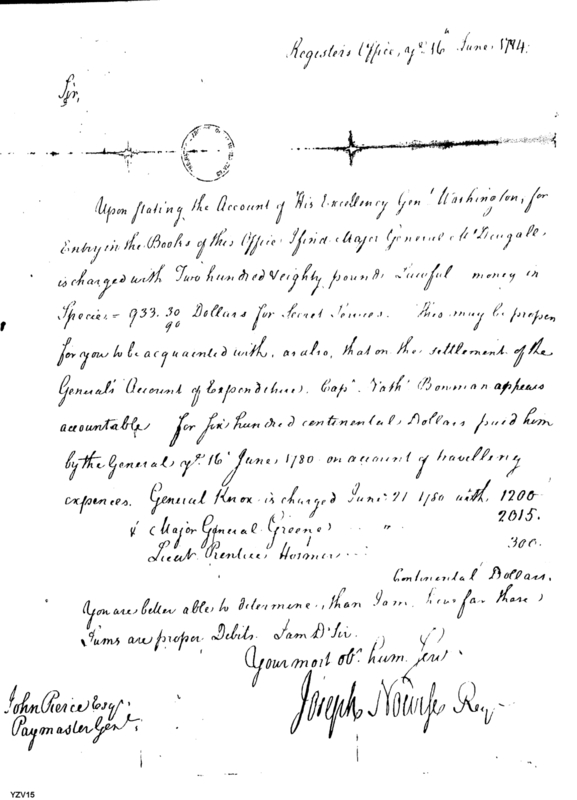 Register's Office, ye 16th June 1784.
Sir,
Upon stating the Account of His Excellency Genl Washington, for
Entry in the Books of this Office I find Major General McDougall
is charged with Two hundred & eighty pounds Lawful money in
Specie = 933.30/90 Dollars for Secret Services. This may be proper
for you to be acquainted with, as also, that on the settlement of the
General's Account of Expenditures. Capt. Nathl Bowman appears
accountable for Six hundred continental Dollars paid him
by the General ye 16 June 1780 on account of travelling
expences. General Knox is charged June 21 1780 with 1200
& Major General Greene " 2015.
Lieut. Prentice 300.
Continental Dollars.
You are better able to determine, than I am how far these
Sums are proper Debits. I am Dr Sir.
Your most obt hum Serv
Joseph Nourse Reg
John Pierce Esqr.
Paymaster Genl.
YZV15